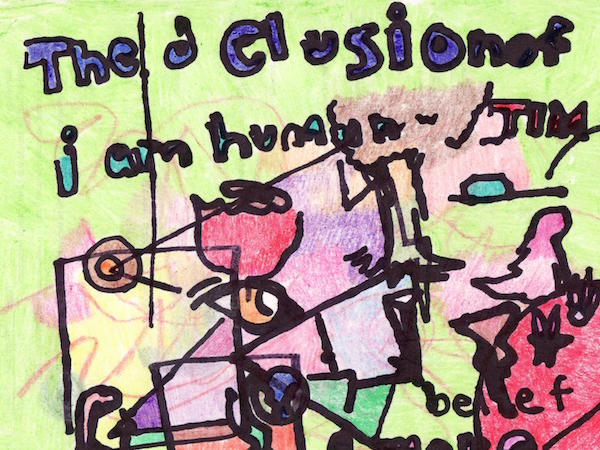 The d Clusion of
i am human ~ TIM
belief